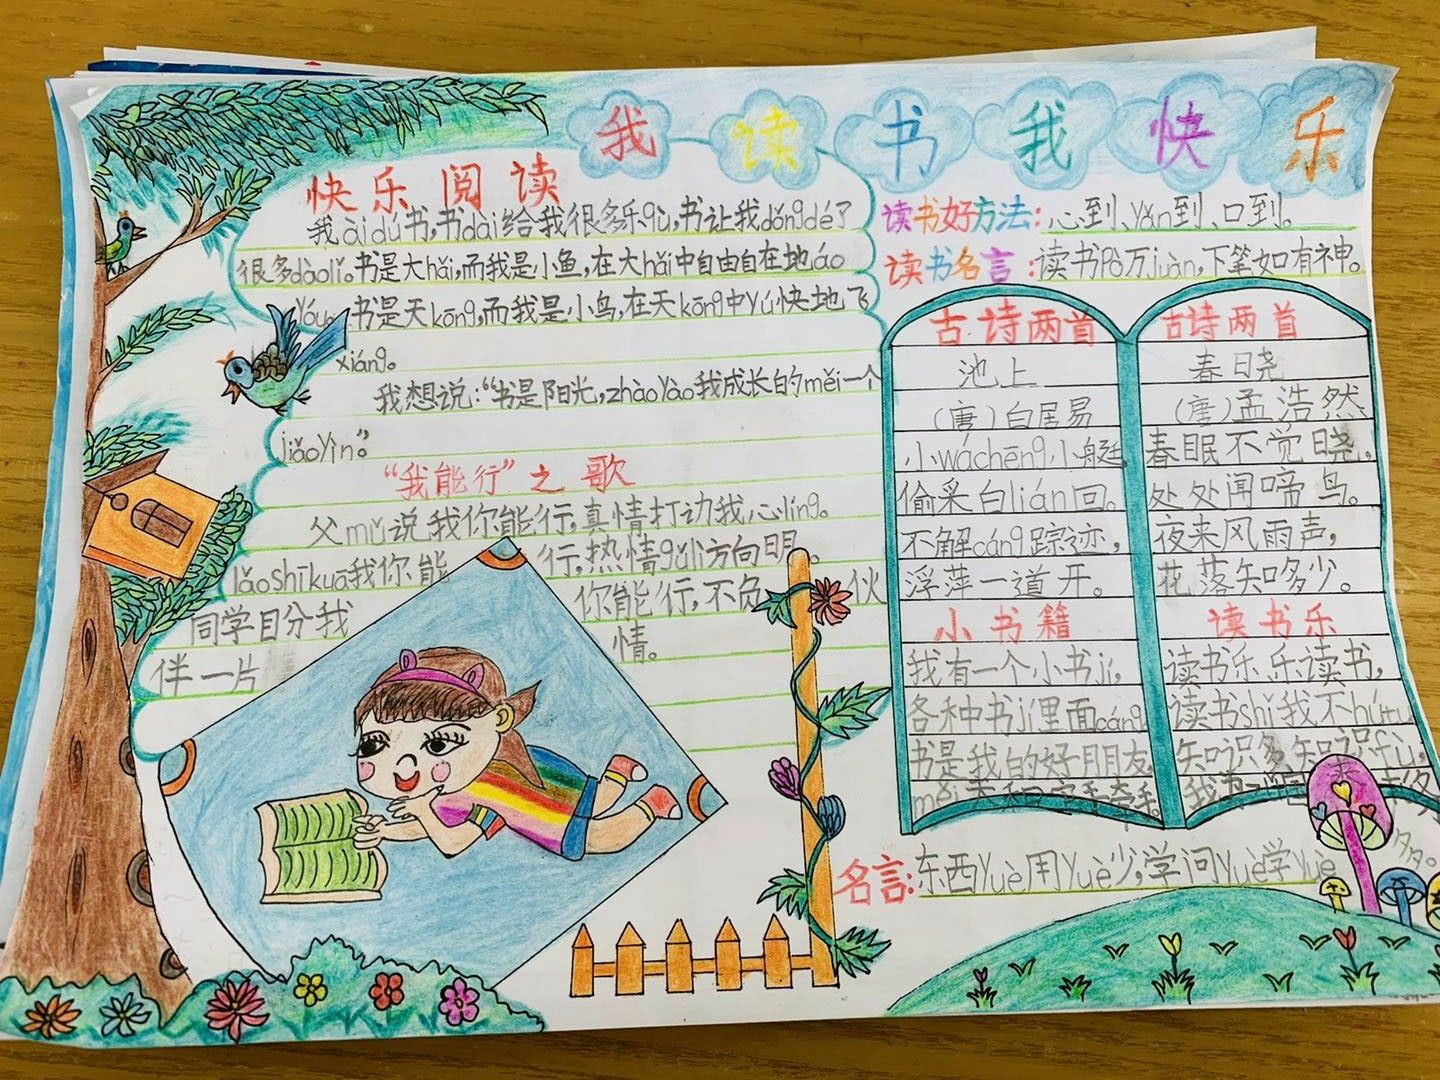 我读书我快乐
快乐阅读
我ài dú书,书dài给我很多乐qù,书让我dǒng dé了
很多dào lǐ。书是大hǎi,而我是小鱼,在大hǎi中自由自在地áo
yóu。书是天kōng,而我是小鸟,在天kōng中yú快地飞
xiáng。
我想说:“书是阳光,zhào yào我成长的měi一个
jiǎo yìn”。
“我能行”之歌
父mǔ说我你能行,真情打动我心líng。
lǎo shī kuā我你能行,热情gǔ lì方向明。
同学自分我你能行,不负伙
伴一片情。
读书好方法:心到、yǎn到、口到。
读书名言:读书pò万juàn,下笔如有神。
古诗两首
池上
(唐)白居易
小wá chēng小艇,
偷采白lián回。
不解cáng踪迹,
浮萍一道开。
小书籍
我有一个小书jí,
各种书jí里面cáng
书是我的好朋友
měi天和它
古诗两首
春日晓
(唐)孟浩然
春眠不觉晓,
处处闻啼鸟。
夜来风雨声,
花落知多少。
读书乐
读书乐乐读书,
读书shǐ我不hú tu
知识多知识fù,
我为
名言:东西yuè用yuè少,学问yuè学yuè
多。